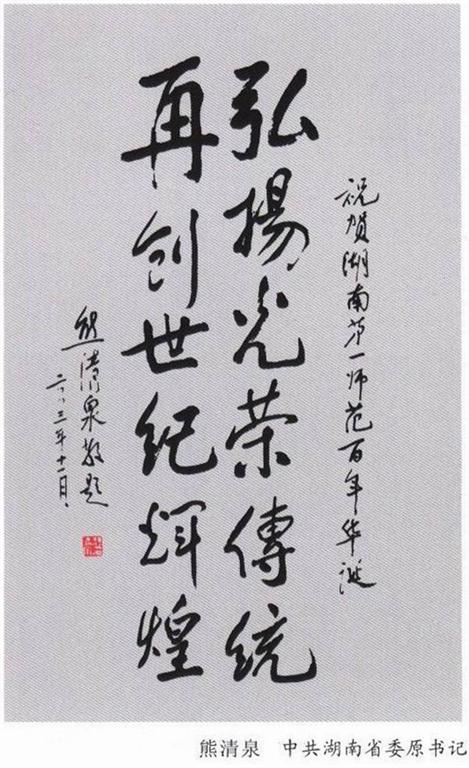 祝贺湖南第一师范百年华诞
弘揚光荣傳統
再创世纪辉煌
熊清泉敬题
二〇〇三年十一月
熊清泉　中共湖南省委原书记